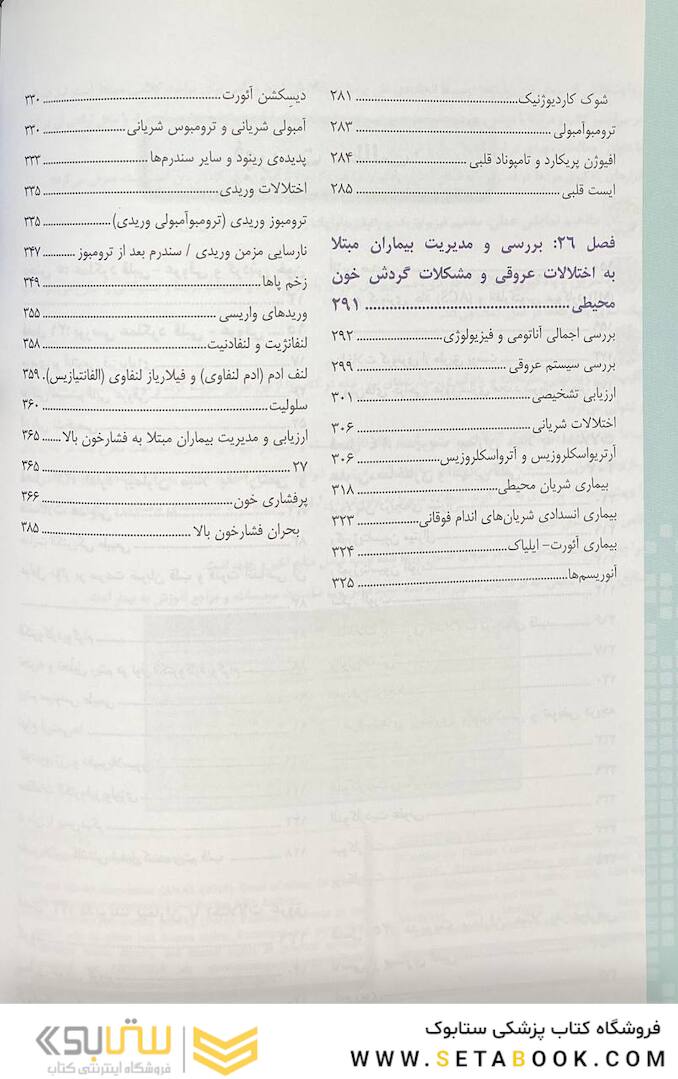 شوک کاردیوژنیک ۲۸۱
ترومبوآمبولی ۲۸۳
افیوژن پریکارد و تامپوناد قلبی ۲۸۴
ایست قلبی ۲۸۵
فصل ۲۶: بررسی و مدیریت بیماران مبتلا
به اختلالات عروقی و مشکلات گردش خون
محیطی ۲۹۱
بررسی اجمالی آناتومی و فیزیولوژی ۲۹۲
بررسی سیستم عروقی ۲۹۹
ارزیابی تشخیصی ۳۰۱
اختلالات شریانی ۳۰۶
آرتریواسکلروزیس و آترواسکلروزیس ۳۰۶
بیماری شریان محیطی ۳۱۸
بیماری انسدادی شریان‌های اندام فوقانی ۳۲۳
بیماری آئورت- ایلیاک ۳۲۴
آنوریسم‌ها ۳۲۵
دیسِکشن آئورت ۳۳۰
آمبولی شریانی و ترومبوس شریانی ۳۳۰
پدیده‌ی رینود و سایر سندرم‌ها ۳۳۳
اختلالات وریدی ۳۳۵
ترومبوز وریدی (ترومبوآمبولی وریدی) ۳۳۵
نارسایی مزمن وریدی / سندرم بعد از ترومبوز ۳۴۷
زخم پاها ۳۴۹
وریدهای واریسی ۳۵۵
لنفانژیت و لنفادنیت ۳۵۸
لنف ادم (ادم لنفاوی) و فیلاریاز لنفاوی (الفانتیازیس). ۳۵۹
سلولیت ۳۶۰
ارزیابی و مدیریت بیماران مبتلا به فشارخون بالا ۳۶۵
۲۷ ۳۶۵
پرفشاری خون ۳۶۶
بحران فشارخون بالا ۳۸۵
فروشگاه کتاب پزشکی ستابوک
WWW.SETABOOK.COM
ستابوک
فروشگاه اینترنتی کتاب